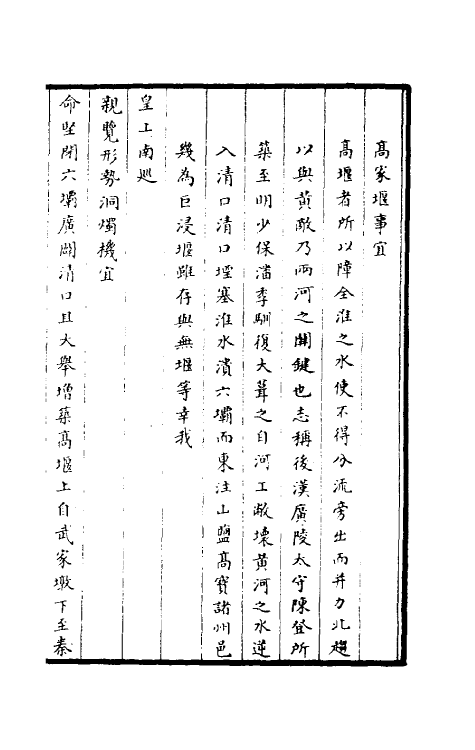 高家堰事宜
高堰者所以障全淮之水使不得分流旁出而并力北趨
以與黃敵乃兩河之關鍵也志稱後漢廣陵太守陳登所
築至明少保潘季馴復大葺之自河工敝壞黃河之水逆
入清口清口堙塞淮水潰六壩而東注山鹽高寶諸州邑
幾為巨浸堰雖存與無堰等幸我
皇上南巡
親覽形勢洞燭機宜
命堅閉六壩廣闢清口且大舉增築高堰上自武家墩下至秦